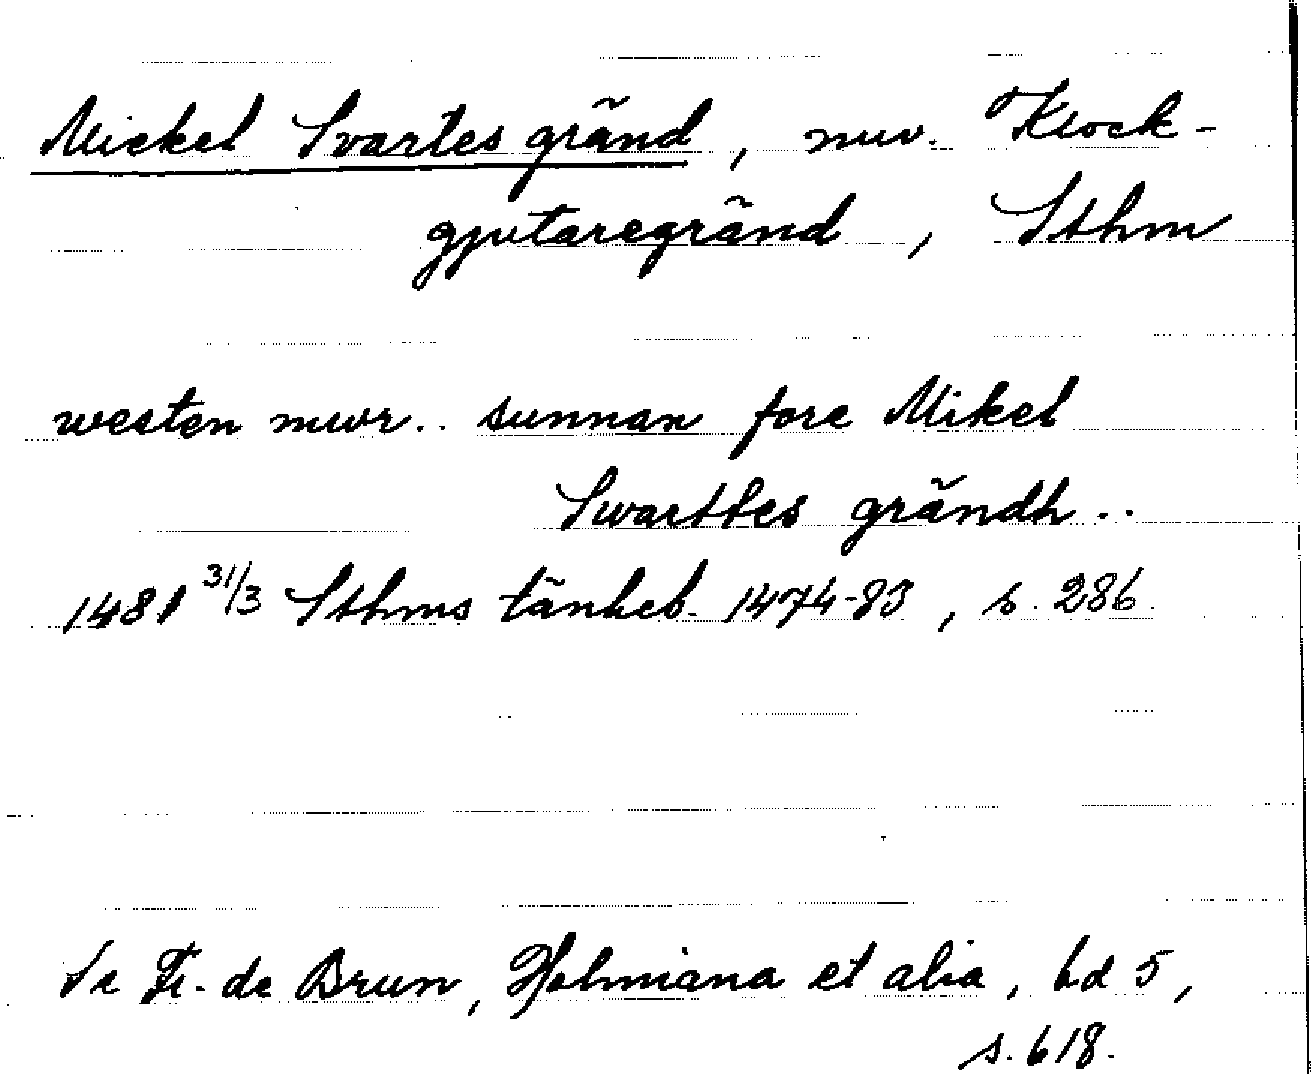 Mickel Svartes gränd, nuv. Klock-
gjutaregränd, Sthm
westen mwr.. sunnan fore Mikel
Swarttes grändh..
1481 31/3 Sthms tänkeb. 1474-83, s. 286.
Se Fr. de Brun, Holmiana et alia, bd 5,
s. 618.